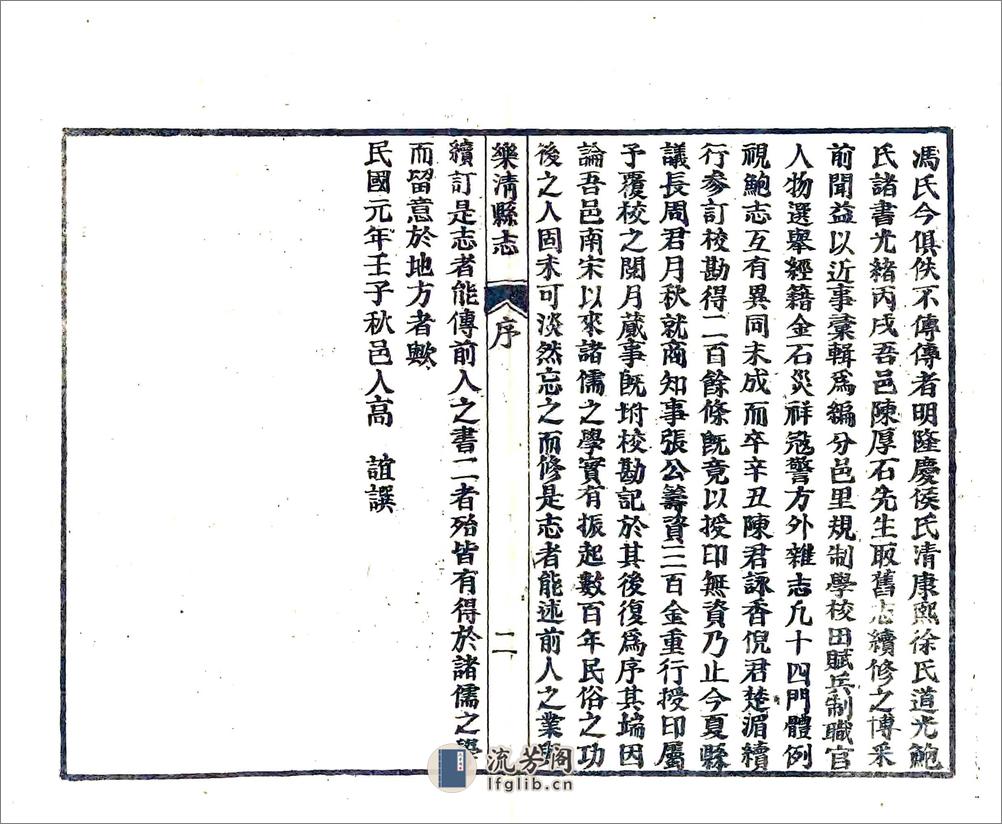 馮氏今俱佚不傳傳者明隆慶侯氏清康熙徐氏道光鮑
氏諸書光緒丙戌吾邑陳厚石先生取舊志續修之博采
前聞益以近事彙輯爲編分邑里規制學校田賦兵制職官
人物選舉經籍金石災祥寇警方外雜志凡十四門體例
視鮑志互有異同未成而卒辛丑陳君詠香倪君楚湄續
行參訂校勘得二百餘條旣竟以授印無資乃止今夏縣
議長周君月秋就商知事張公籌資三百金重行授印屬
子覆校之閱月蕆事旣坿校勘記於其後復爲序其端因
論吾邑南宋以來諸儒之學實有振起數百年民俗之功
後之人固未可淡然忘之而修是志者能述前人之業與
樂清縣志
序
二
續訂是志者能傳前人之書二者殆皆有得於諸儒之學
而留意於地方者歟
民國元年壬子秋邑人高 誼譔
流芳閣
lfglib.cn